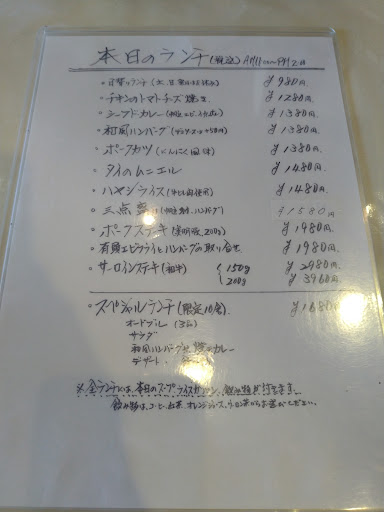 本日のランチ (税込) AM11:00〜PM2:00
・日替りランチ (土、日、祭日はお休み) ¥980円
・チキンのトマトチーズ焼き ¥1280円
・シーフドカレー ¥1380円
・和風ハンバーグ ¥1380円
・ポークカツ (にんにく風味) ¥1380円
・タイのムニエル ¥1480円
・ハヤシライス (牛ヒレ肉使用) ¥1480円
・三点盛り ¥1580円
・ポークステーキ 200g) ¥1980円
・有頭エビフライとハンバーグの取り合せ ¥1980円
・サーロインステキ (和牛) 150g ¥2980円
200g ¥3960円
・スペシャルランチ (限定10食) ¥1680円
オードブル (3種)
サラダ
和風ハンバーグ カレー
デザート
※全ランチには、本日のスープ、ライス 飲み物が付きます。
飲み物は、コーヒー、紅茶、オレンジジュース、ウーロン茶からお選びください。